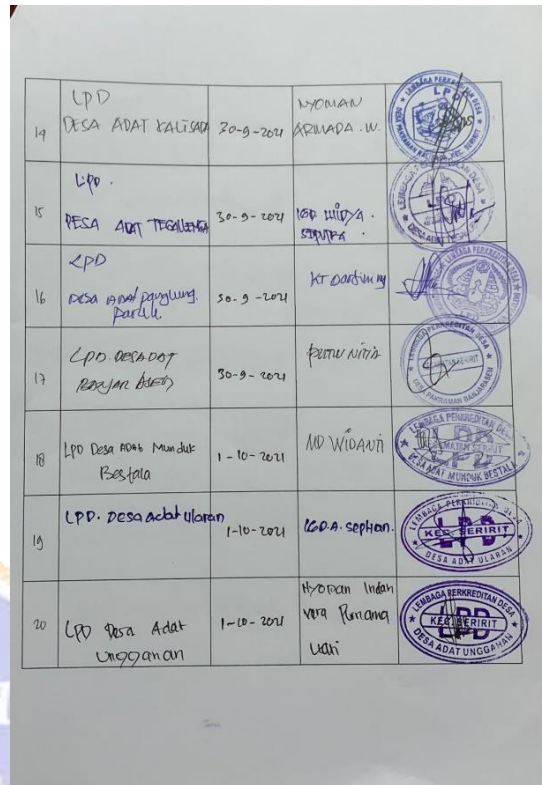 14
LPD
DESA ADAT KALISADA
30-9-2021
NYOMAN
ARMADA . W.
LEMBAGA PERKREDITAN DESA
LPD
DESA PAKRAMAN KALISADA, KEC. SERIRIT
15
LPD.
DESA ADAT TEGALLENGA
30-9-2021
IGD WIDYA .
LEMBAGA PERKREDITAN DESA
DESA ADAT
16
LPD
DESA ADAT panglung.
30-9-2021
KT
LEMBAGA PERKREDITAN DESA
17
LPD. DESA DAT
BANJAR ASEM
30-9-2021
PUTU NITIA
LEMBAGA PERKREDITAN DESA
KECAMATAN SERIRIT
DESA PAKRAMAN BANJARASEM
18
LPD Desa ADAt Munduk
Bestala
1-10-2021
MD WIDANTI
LEMBAGA PERKREDITAN DESA
LPD
KECAMATAN SERIRIT
DESA ADAT MUNDUK BESTALA
19
LPD. Desa adat ularan
1-10-2021
LEMBAGA PERKRIDITAN DESA
LPD
KEC. SERIRIT
DESA ADAT ULARAN
20
LPD Desa Adat
Unggahan
1-10-2021
Nyoman Indah
vera Purnama
LEMBAGA PERKREDITAN DESA
LPD
KEC. SERIRIT
DESA ADAT UNGGAHAN